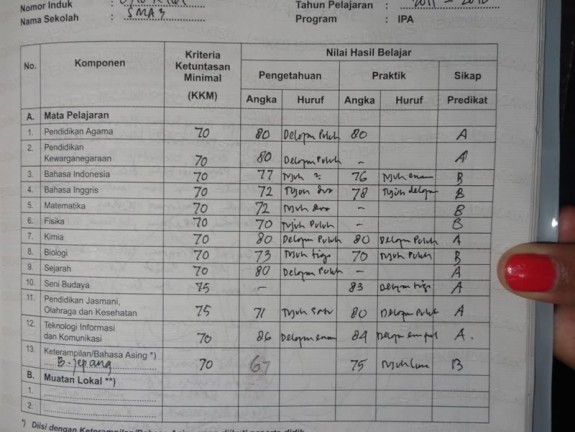 Nomor Induk :
Nama Sekolah : SMA 3
Tahun Pelajaran :
Program : IPA
No. Komponen Kriteria Ketuntasan Minimal (KKM) Nilai Hasil Belajar
Pengetahuan Praktik Sikap
Angka Huruf Angka Huruf Predikat
A. Mata Pelajaran
1. Pendidikan Agama 70 80 Delapan Puluh 80 A
2. Pendidikan
Kewarganegaraan 70 80 Delapan Puluh - A
3. Bahasa Indonesia 70 77 Tujuh 76 Tujuh enam B
4. Bahasa Inggris 70 72 Tujuh dua 78 Tujuh delapan B
5. Matematika 70 72 Tujuh dua - B
6. Fisika 70 70 Tujuh Puluh - B
7. Kimia 70 80 Delapan Puluh 80 Delapan Puluh A
8. Biologi 70 73 Tujuh tiga 70 Tujuh Puluh B
9. Sejarah 70 80 Delapan Puluh - A
10. Seni Budaya 75 - 83 Delapan tiga A
11. Pendidikan Jasmani,
Olahraga dan Kesehatan 75 71 Tujuh Satu 80 Delapan Puluh A
12. Teknologi Informasi
dan Komunikasi 70 86 Delapan enam 84 Delapan empat A.
13. Keterampilan/Bahasa Asing *)
B. Jepang 70 67 75 Tujuh lima B
B. Muatan Lokal **)
1.
2.
*) Diisi dengan